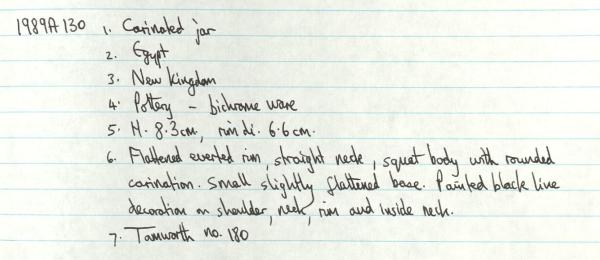 1989A130 1. Carinated jar
2. Egypt
3. New Kingdom
4. Pottery - bichrome ware
5. H. 8.3cm, rim di. 6.6cm.
6. Flattened everted rim, straight neck, squat body with rounded
carination. Small slightly flattened base. Painted black line
decoration on shoulder, neck, rim and inside neck.
7. Tamworth no. 180